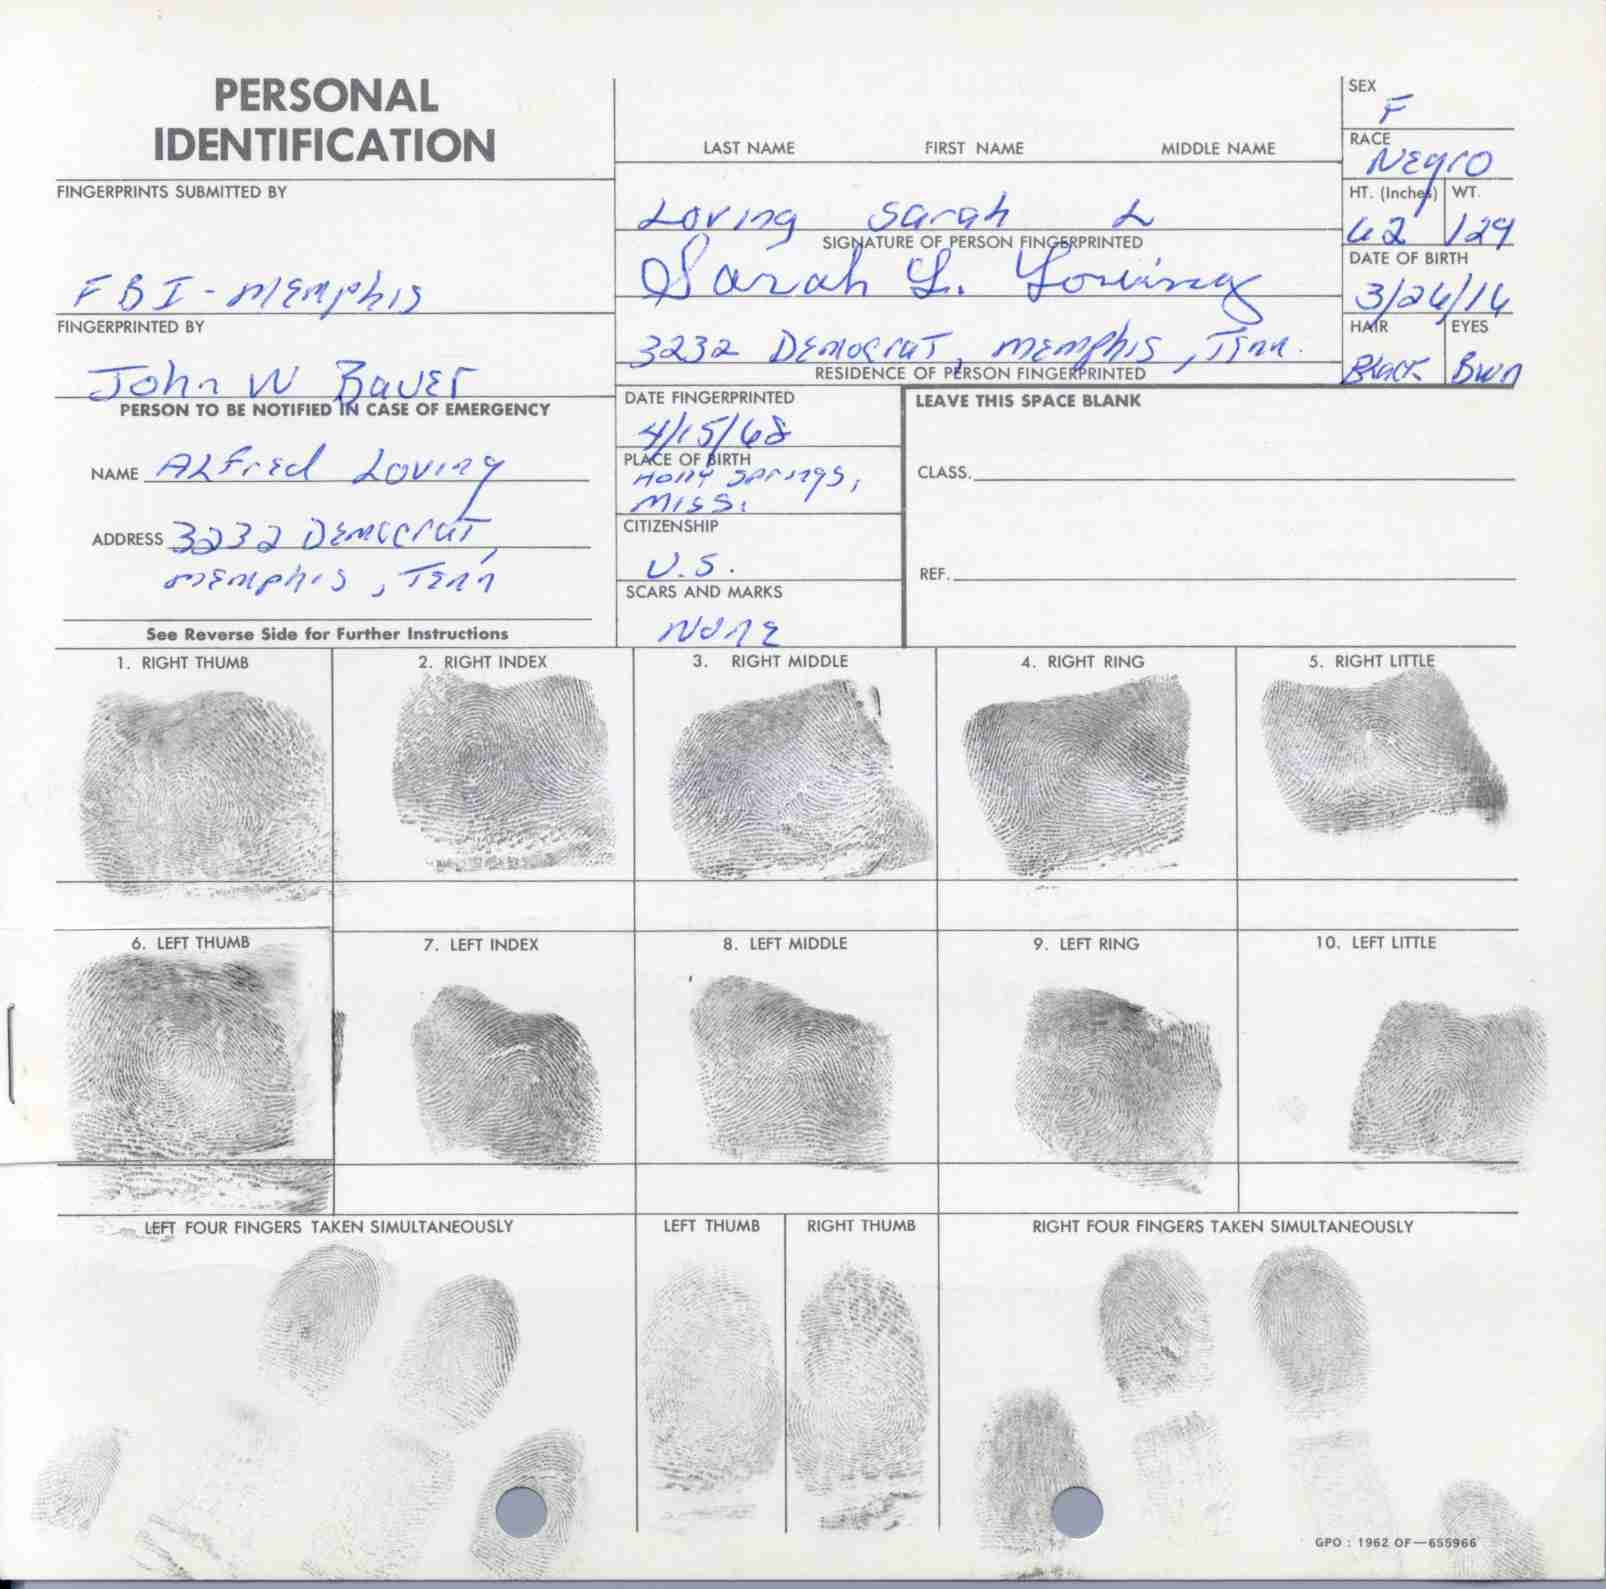 PERSONAL
IDENTIFICATION
FINGERPRINTS SUBMITTED BY
FBI - Memphis
FINGERPRINTED BY
John W Bauer
PERSON TO BE NOTIFIED IN CASE OF EMERGENCY
NAME Alfred Loving
ADDRESS 3232 Democrat,
Memphis, Tenn
See Reverse Side for Further Instructions
LAST NAME FIRST NAME MIDDLE NAME
Loving Sarah L
SIGNATURE OF PERSON FINGERPRINTED
Sarah L. Loving
3232 Democrat, Memphis, Tenn.
RESIDENCE OF PERSON FINGERPRINTED
SEX
F
RACE
Negro
HT. (Inches) WT.
62 129
DATE OF BIRTH
3/26/16
HAIR EYES
Black Bwn
DATE FINGERPRINTED
4/15/68
PLACE OF BIRTH
Holly Springs,
Miss.
CITIZENSHIP
U.S.
SCARS AND MARKS
None
LEAVE THIS SPACE BLANK
CLASS.
REF.
1. RIGHT THUMB 2. RIGHT INDEX 3. RIGHT MIDDLE 4. RIGHT RING 5. RIGHT LITTLE
6. LEFT THUMB 7. LEFT INDEX 8. LEFT MIDDLE 9. LEFT RING 10. LEFT LITTLE
LEFT FOUR FINGERS TAKEN SIMULTANEOUSLY LEFT THUMB RIGHT THUMB RIGHT FOUR FINGERS TAKEN SIMULTANEOUSLY
GPO : 1962 OF—655966